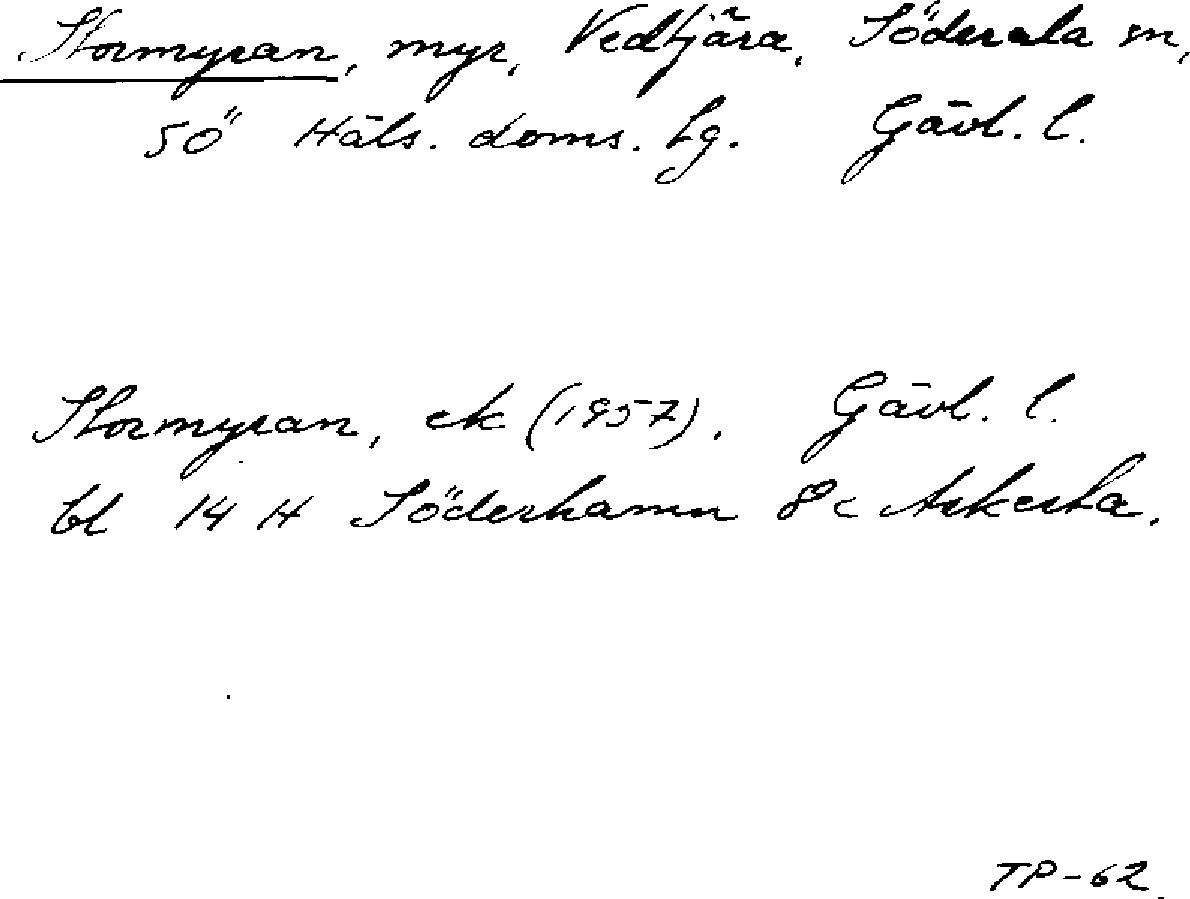 Stormyran, myr, Vedtjära, Söderala sn,
Sö Häls. doms. lg. Gävl. l.
Stormyran, ek (1957). Gävl. l.
bl 14 H Söderhamn 8c Askesta.
TP-62